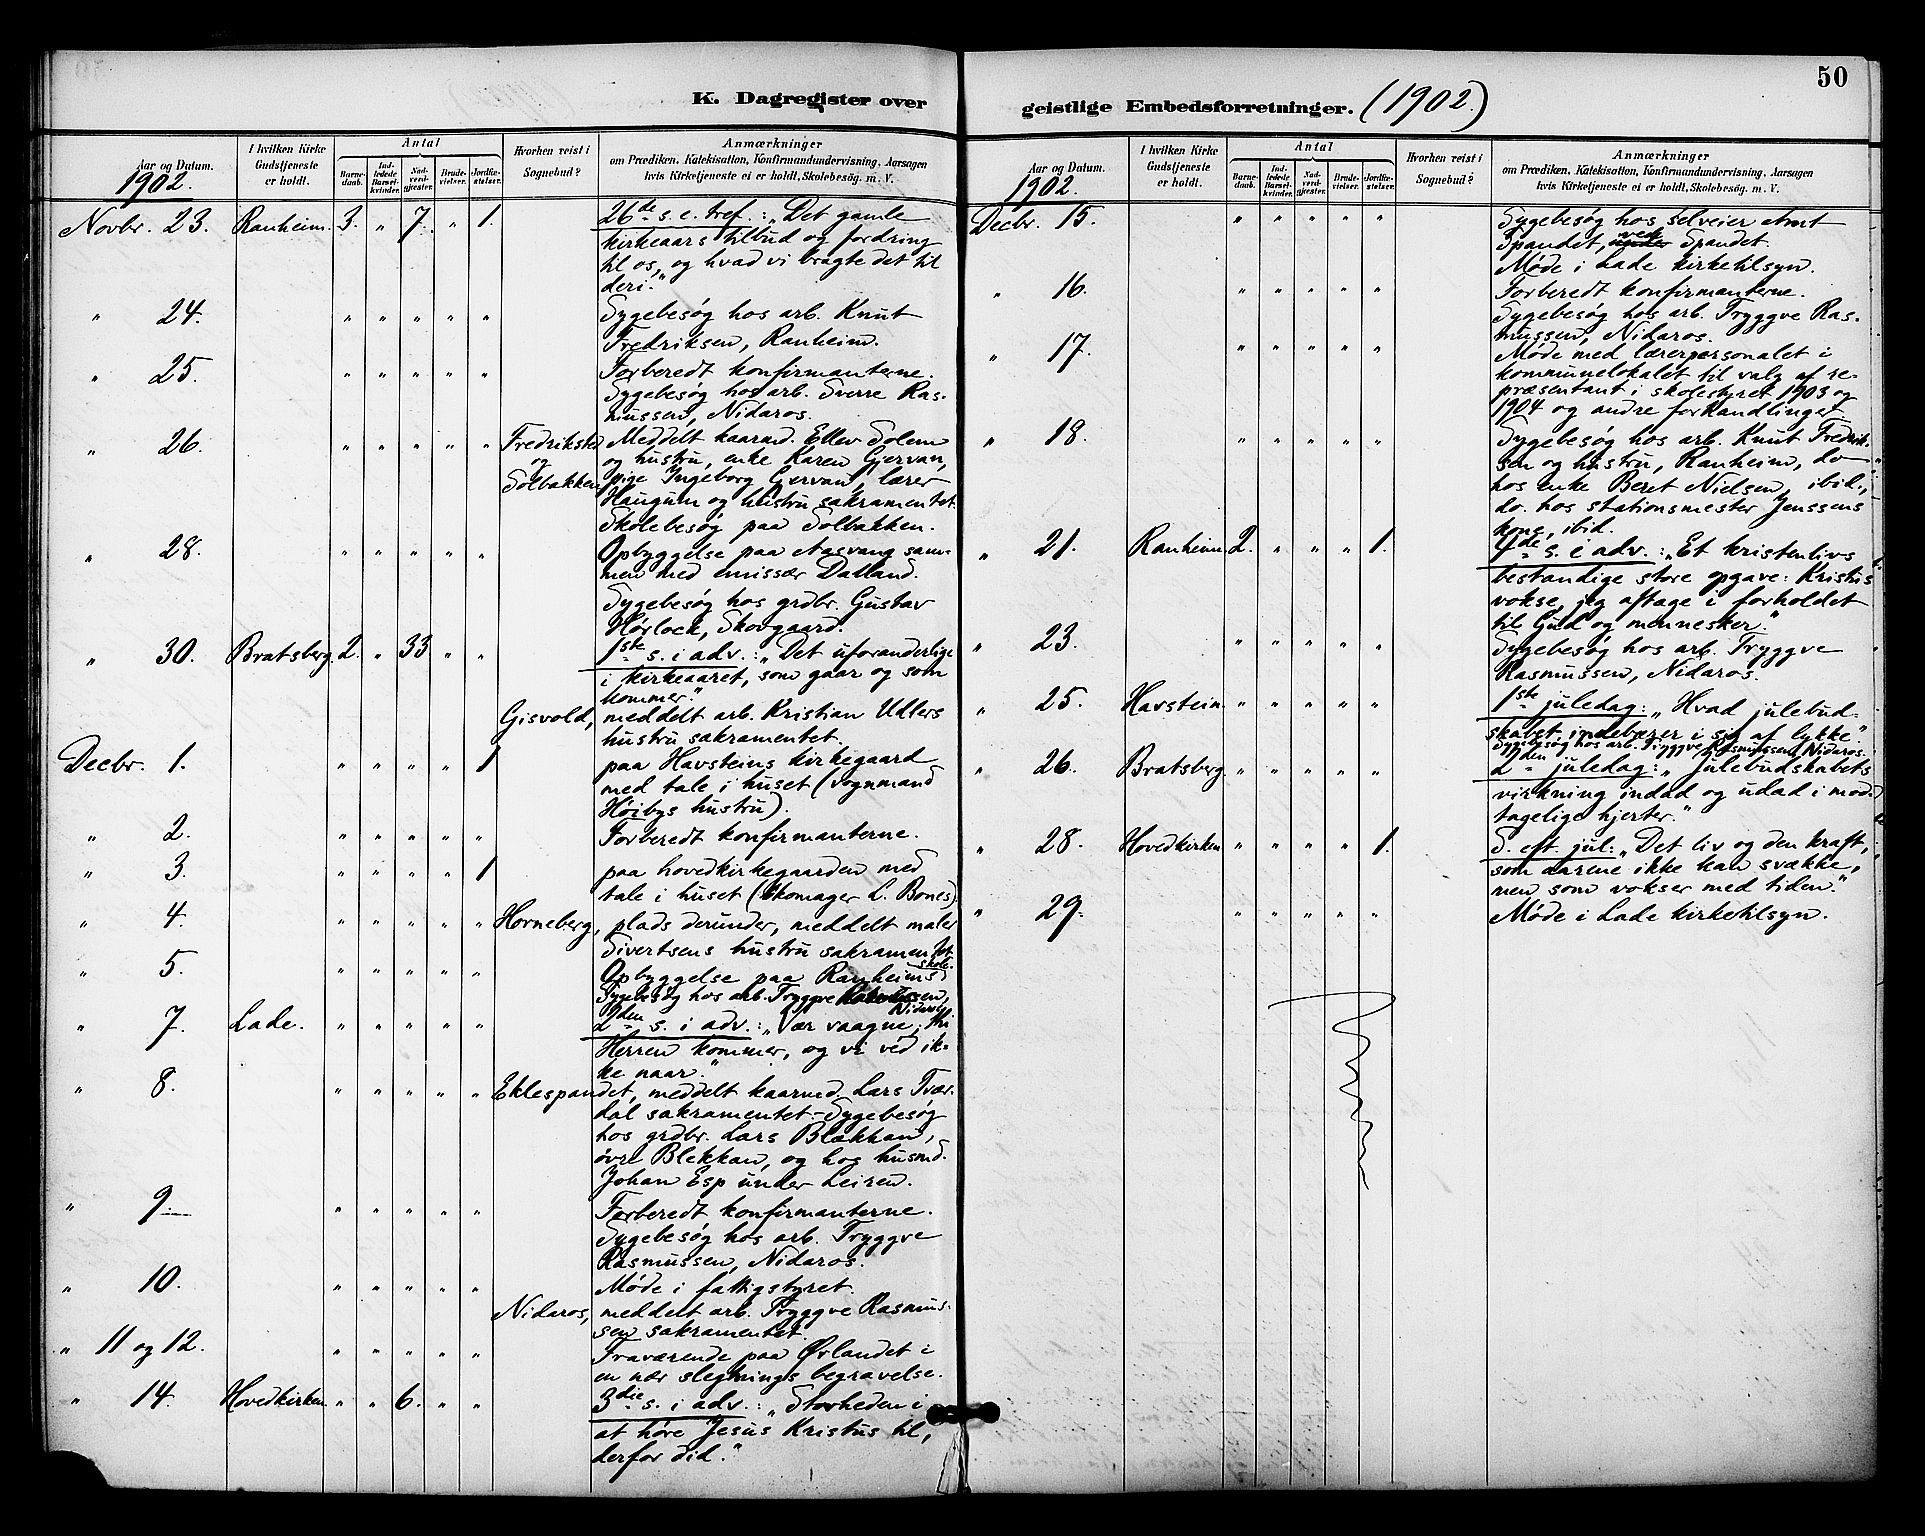 K. Dagregister over
Aar og Datum.
1902.
I hvilken Kirke Gudstjeneste er holdt.
Antal
Barnedaab.
Indledede Barselkvinder.
Nadverdgjester.
Brudevielser.
Jordfæstelser.
Hvorhen reist i Sognebud?
Anmærkninger
om Prædiken, Katekisation, Konfirmandundervisning, Aarsagen
hvis Kirketjeneste ei er holdt, Skolebesøg. m. V.
Novbr. 23. Ranheim. 3. " 7. " 1. 26de s. e. tref.: "Det gamle
kirkeaars tilbud og fordring
til os, og hvad vi bragte det til
deri."
" 24. " " " " " Sygebesøg hos arb. Knut
Fredriksen, Ranheim.
" 25. " " " " " Forberedt konfirmanterne.
Sygebesøg hos arb. Sverre Ras-
mussen, Nidaros.
" 26. " " " " " Fredriksted Meddelt kaarmd. Ellev Solem
og og hustru, enke Karen Gjervan,
Solbakken, pige Ingeborg Gjervan, lærer
Haugum og hustru sakramentet.
Skolebesøg paa Solbakken.
" 28. " " " " " Opbyggelse paa Aasvang sam-
men med emissær Dalland.
Sygebesøg hos grdbr. Gustav
Hørlock, Skovgaard.
" 30. Bratsberg. 2. " 33 " " 1ste s. i adv.: "Det uforanderlige
i kirkeaaret, som gaar og som
kommer."
Gisvold, meddelt arb. Kristian Udlers
hustru sakramentet.
Decbr. 1. " " " " 1 paa Havsteins kirkegaard
med tale i huset (vognmand
Høibys hustru).
" 2. " " " " " Forberedt konfirmanterne.
" 3. " " " " 1 paa hovedkirkegaarden med
tale i huset (skomager L. Bones).
" 4. " " " " " Horneberg, plads derunder, meddelt maler
Sivertsens hustru sakramentet.
" 5. " " " " " Opbyggelse paa Ranheims skole.
Sygebesøg hos arb. Tryggve Rasmussen, Nidaros.
" 7. Lade. " " " " " 2den s. i adv.: "Vær vaagne, thi
Herren kommer, og vi ved ik-
ke naar."
" 8. " " " " " Eklespandet, meddelt kaarmd. Lars Tvær-
dal sakramentet. - Sygebesøg
hos grdbr. Lars Blækkan,
øvre Blekkan, og hos husmd.
Johan Esp under Leiren.
" 9. " " " " " Forberedt konfirmanterne.
Sygebesøg hos arb. Tryggve
Rasmussen, Nidaros.
" 10. " " " " " Møde i fattigstyret.
Nidaros, meddelt arb. Tryggve Rasmus-
sen sakramentet.
" 11 og 12. " " " " " Fraværende paa Ørlandet i
en nær slegtnings begravelse.
" 14. Hovedkirken " " 6. " " 3die s. i adv.: "Storheden i
at høre Jesus Kristus til,
derfor did."
50
geistlige Embedsforretninger. (1902.)
Aar og Datum.
1902.
I hvilken Kirke Gudstjeneste er holdt.
Antal
Barnedaab.
Indledede Barselkvinder.
Nadverdgjester.
Brudevielser.
Jordfæstelser.
Hvorhen reist i Sognebud?
Anmærkninger
om Prædiken, Katekisation, Konfirmandundervisning, Aarsagen
hvis Kirketjeneste ei er holdt, Skolebesøg. m. V.
Decbr. 15. " " " " " Sygebesøg hos selveier Arnt
Spandet, under ved Spandet.
Møde i Lade kirketilsyn.
" 16. " " " " " Forberedt konfirmanterne.
Sygebesøg hos arb. Tryggve Ras-
mussen, Nidaros.
" 17. " " " " " Møde med lærerpersonalet i
kommunelokalet til valg af re-
præsentant i skolestyret 1903 og
1904 og andre forhandlinger.
" 18. " " " " " Sygebesøg hos arb. Knut Fredrik-
sen og hustru, Ranheim, do
hos enke Beret Nielsen, ibid.,
do. hos stationsmester Jenssens
kone, ibid.
" 21. Ranheim 2. " " " 1. 4de s. i adv.: "Et kristenlivs
bestandige store opgave: Kristus
vokse, jeg aftage i forholdet
til Gud og mennesker."
" 23. " " " " " Sygebesøg hos arb. Tryggve
Rasmussen, Nidaros.
" 25. Havstein. " " " " " 1ste juledag: "Hvad julebud-
skabet indebærer i sig af lykke."
Sygebesøg hos arb. Tryggve Rasmussen, Nidaros.
" 26. Bratsberg. " " " " " 2den juledag: "Julebudskabets
virkning indad og udad i mod-
tagelige hjerter."
" 28. Hovedkirken " " " " 1. S. eft. jul: "Det liv og den kraft,
som aarene ikke kan svække,
men som vokser med tiden."
" 29. " " " " " Møde i Lade kirketilsyn.